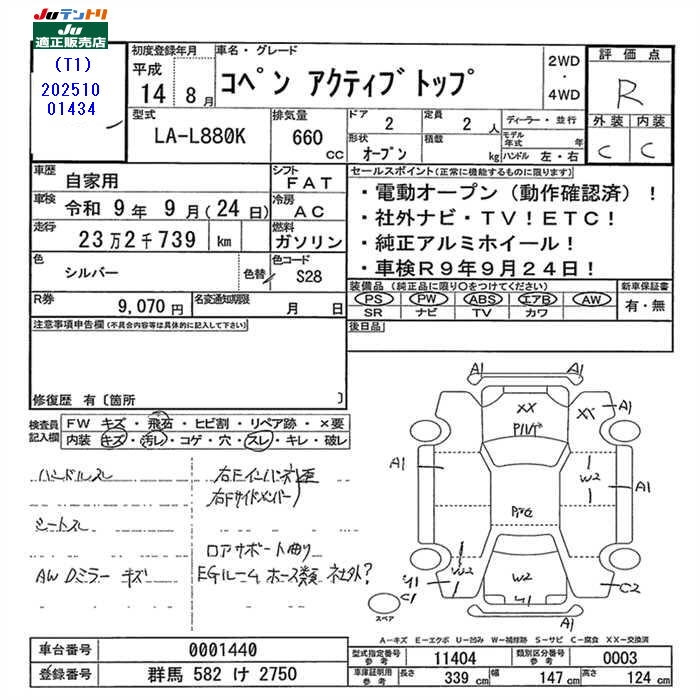 Juテントリ
Ju
適正販売店
(T1)
202510
01434
初度登録年月
平成
14 8月
車名・グレード
コペン アクティブトップ
2WD
・
4WD
評価点
R
外装 内装
C C
型式
LA-L880K
排気量
660
cc
ドア
2
定員
2 人
形状
オープン
積載
kg
ディーラー・並行
モデル年式 年
ハンドル 左・右
車歴
自家用
シフト
FAT
車検
令和 9年 9月(24日)
冷房
AC
走行
23万2千739 km
燃料
ガソリン
色
シルバー
色替
色コード
S28
R券
9,070円
名変通知期限
月 日
セールスポイント(正常に機能するものに限ります)
・電動オープン(動作確認済)!
・社外ナビ・TV!ETC!
・純正アルミホイール!
・車検R9年9月24日!
装備品(純正品に限り○をつけてください)
PS PW ABS エアB AW
SR ナビ TV カワ
新車保証書
有・無
後日品
注意事項申告欄(不具合内容等は具体的に記入して下さい)
修復歴 有〔箇所 〕
検査員
記入欄
FW キズ・飛石・ヒビ割・リペア跡・×要
内装 キズ・汚レ・コゲ・穴・スレ・キレ・破レ
ハンドルスレ
シートスレ
AW Dミラー キズ
右Fインパネ
右Fサイドメンバー
コアサポート曲り
EGルーム ホース類 社外?
A1 A1
XX XX A1
P1バケ
A1 W2 A1
W2 W2 C2
C1
A1
スペア
A−キズ E−エクボ U−凹み W−補修跡 S−サビ C−腐食 XX−交換済
車台番号
0001440
登録番号
群馬 582 け 2750
型式指定番号
参考
11404
類別区分番号
参考
0003
車庫証明用
参考
長さ 339 cm
幅 147 cm
高さ 124 cm